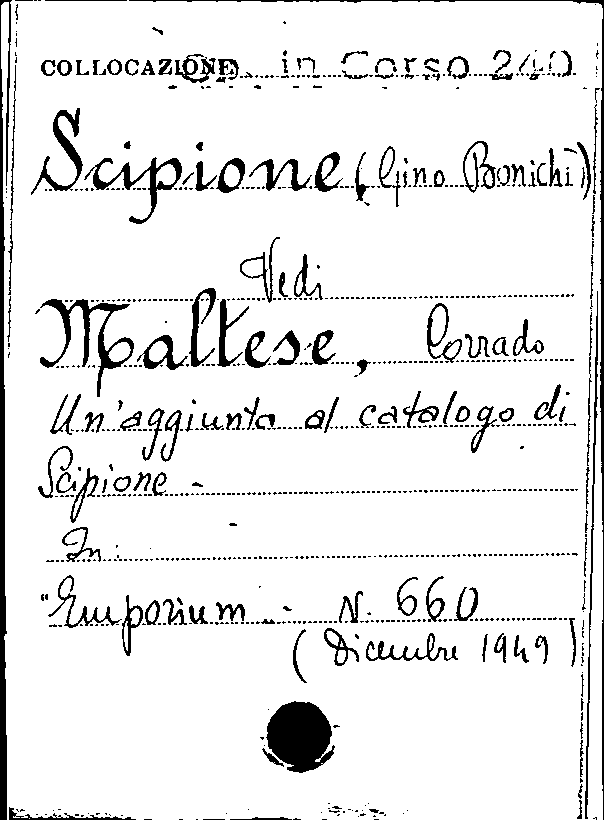 COLLOCAZIONE Op. in Corso 240
Scipione, (Gino Bonichi)
Vedi
Maltese, Corrado
Un'aggiunta al catalogo di
Scipione -
In:
"Emporium.- N. 660
(Dicembre 1949)